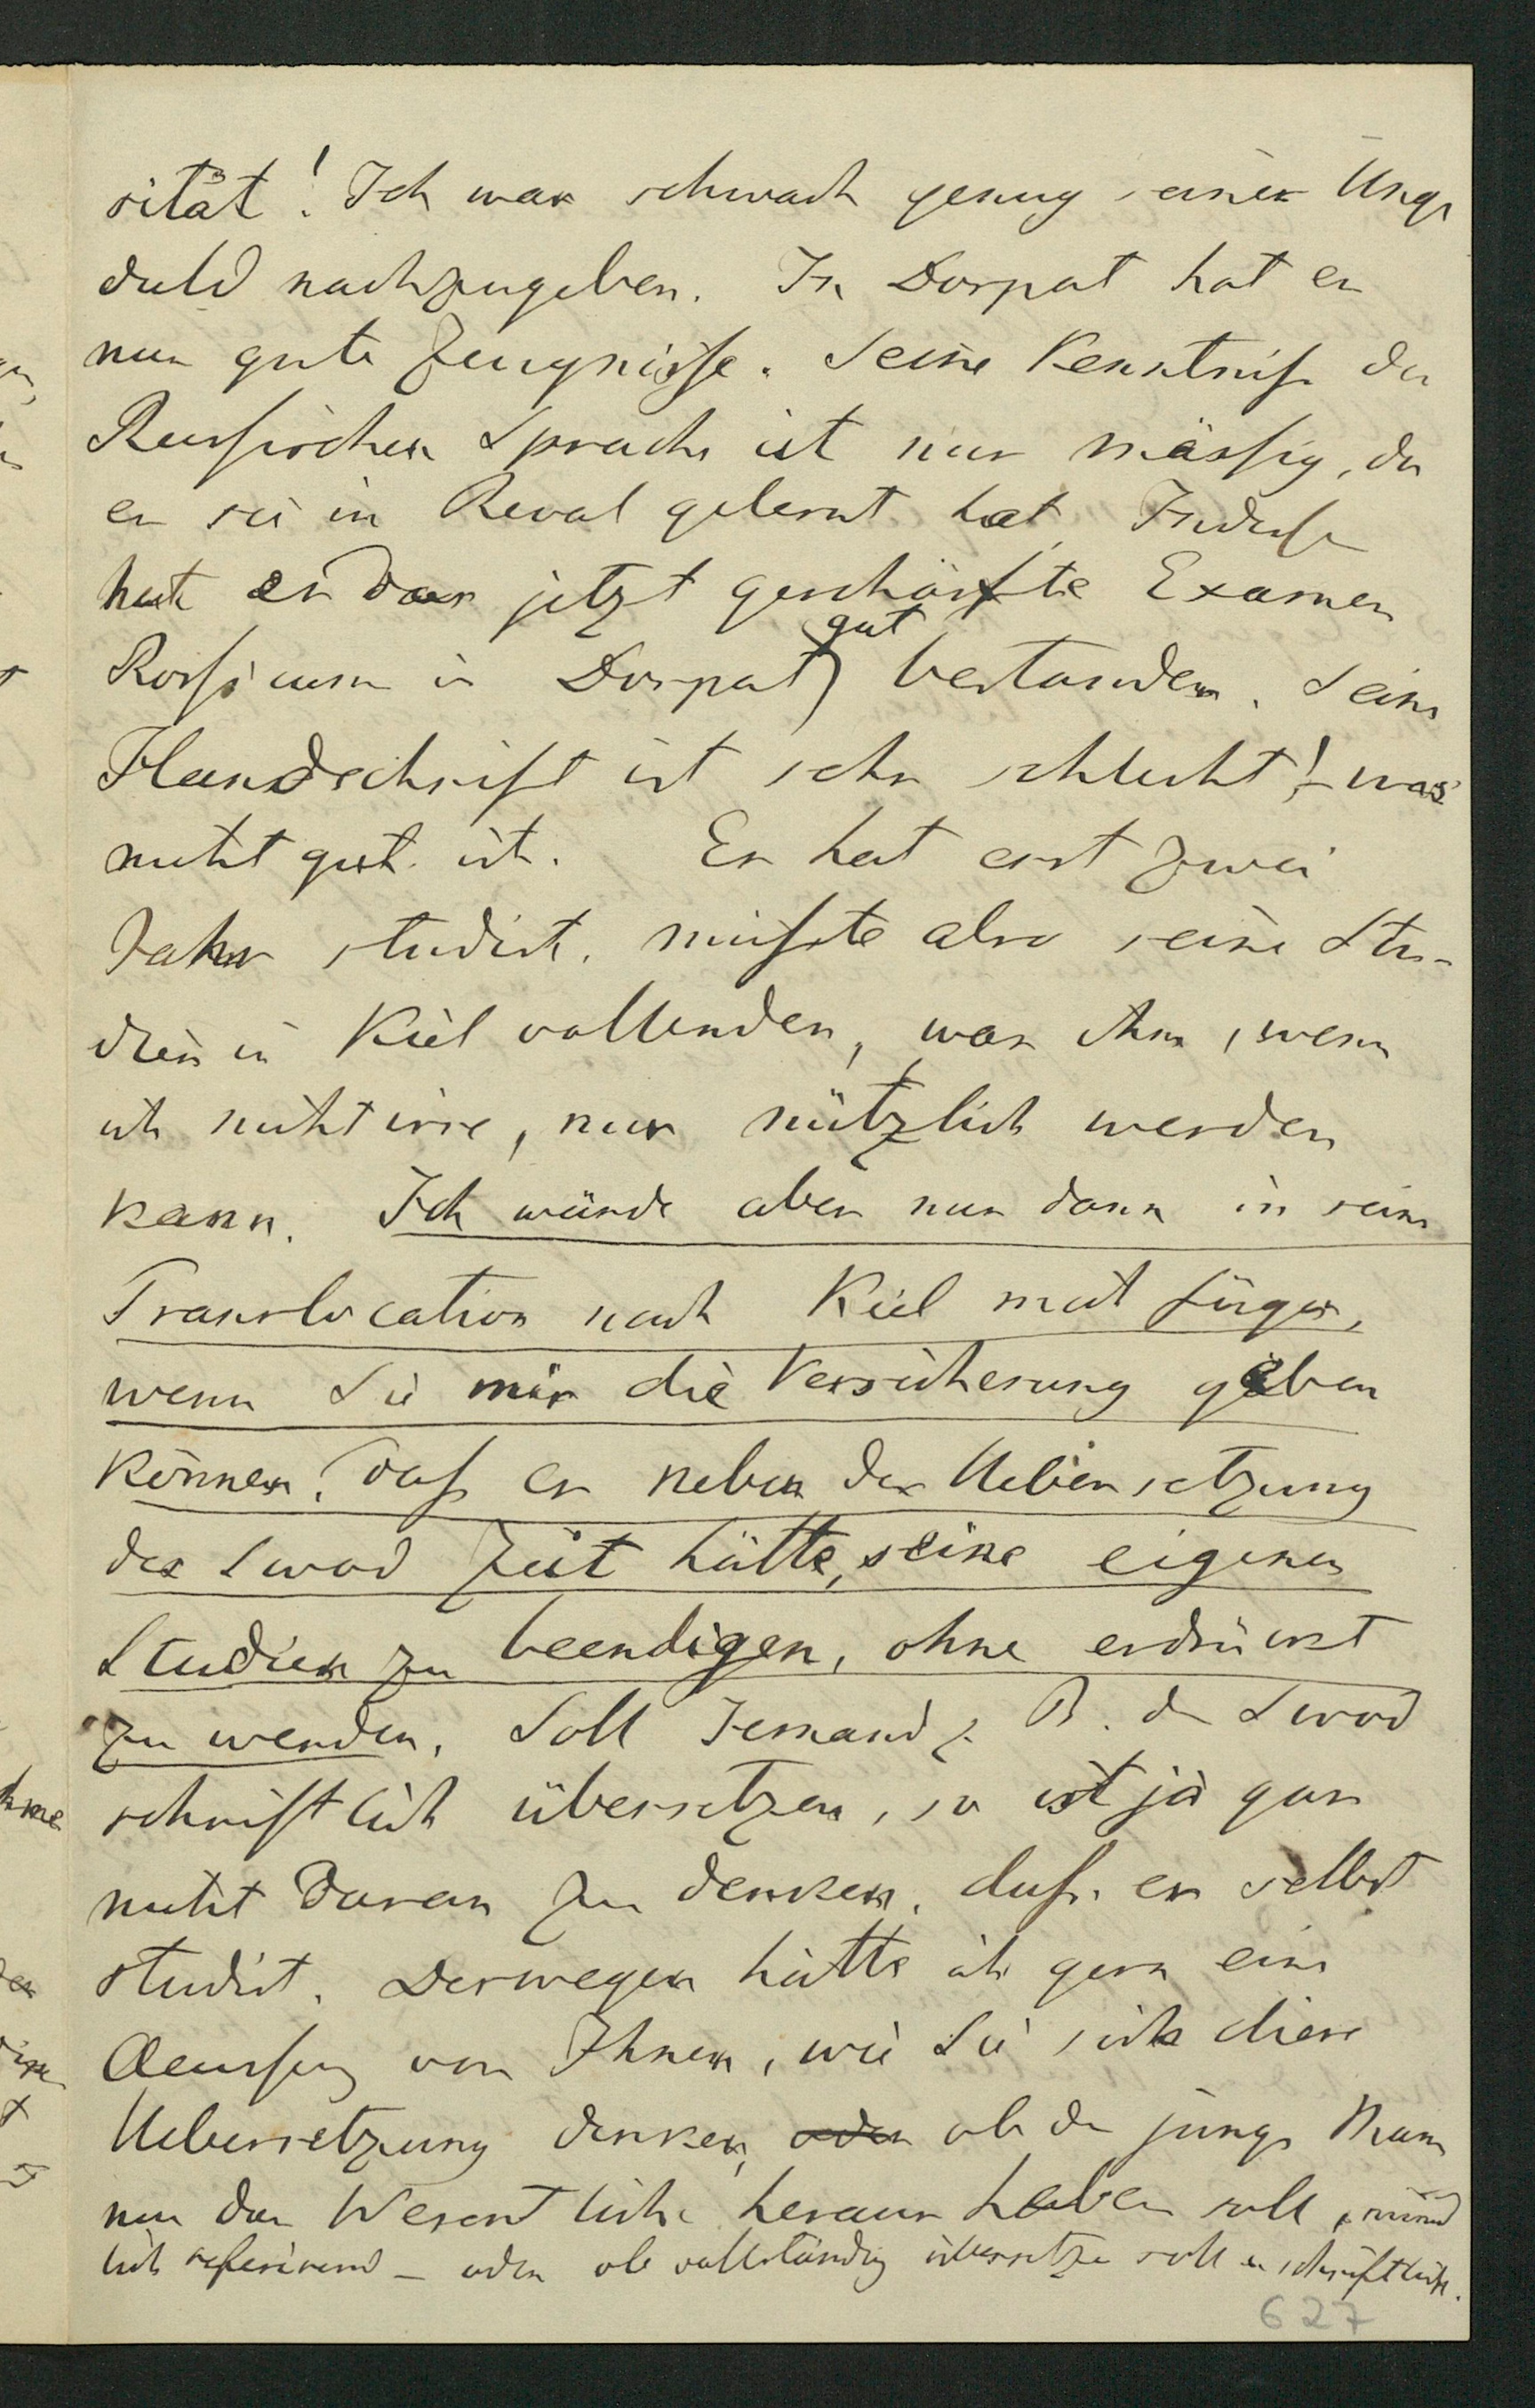 sität! Ich war schwach genug seiner Unge
duld nachzugeben. In Dorpat hat er
nun gute Zeugnisse. Seine Kenntniß der
Russischen Sprache ist nur mässig, da
er sie in Reval gelernt hat. Indeß
hat er das jetzt geschärfte Examen
Rossicum in Dorpat gut bestanden. Seine
Handschrift ist sehr schlecht! – was
nicht gut ist. Er hat erst zwei
Jahr studirt, müßte also seine Stu-
dien in Kiel vollenden, was ihm, wenn
ich nicht irre, nur nützlich werden
kann. Ich würde aber nur dann in seine
Translocation nach Kiel mich fügen,
wenn Sie mir die Versicherung geben
können, daß er neben der Uebersetzung
des Swod Zeit hätte, seine eigenen
Studien zu beendigen, ohne erdrückt
zu werden. Soll Jemand z. B. den Swod
schriftlich übersetzen, so ist ja gar
nicht daran zu denken, daß er selbst
studirt. Deswegen hätte ich gern eine
Aeussrung von Ihnen, wie Sie sich diese
Uebersetzung denken, oder ob der junge Mann
nur das Wesentliche heraus heben soll, münd
lich referirend – oder ob vollständig übersetzen soll u schriftlich.
627